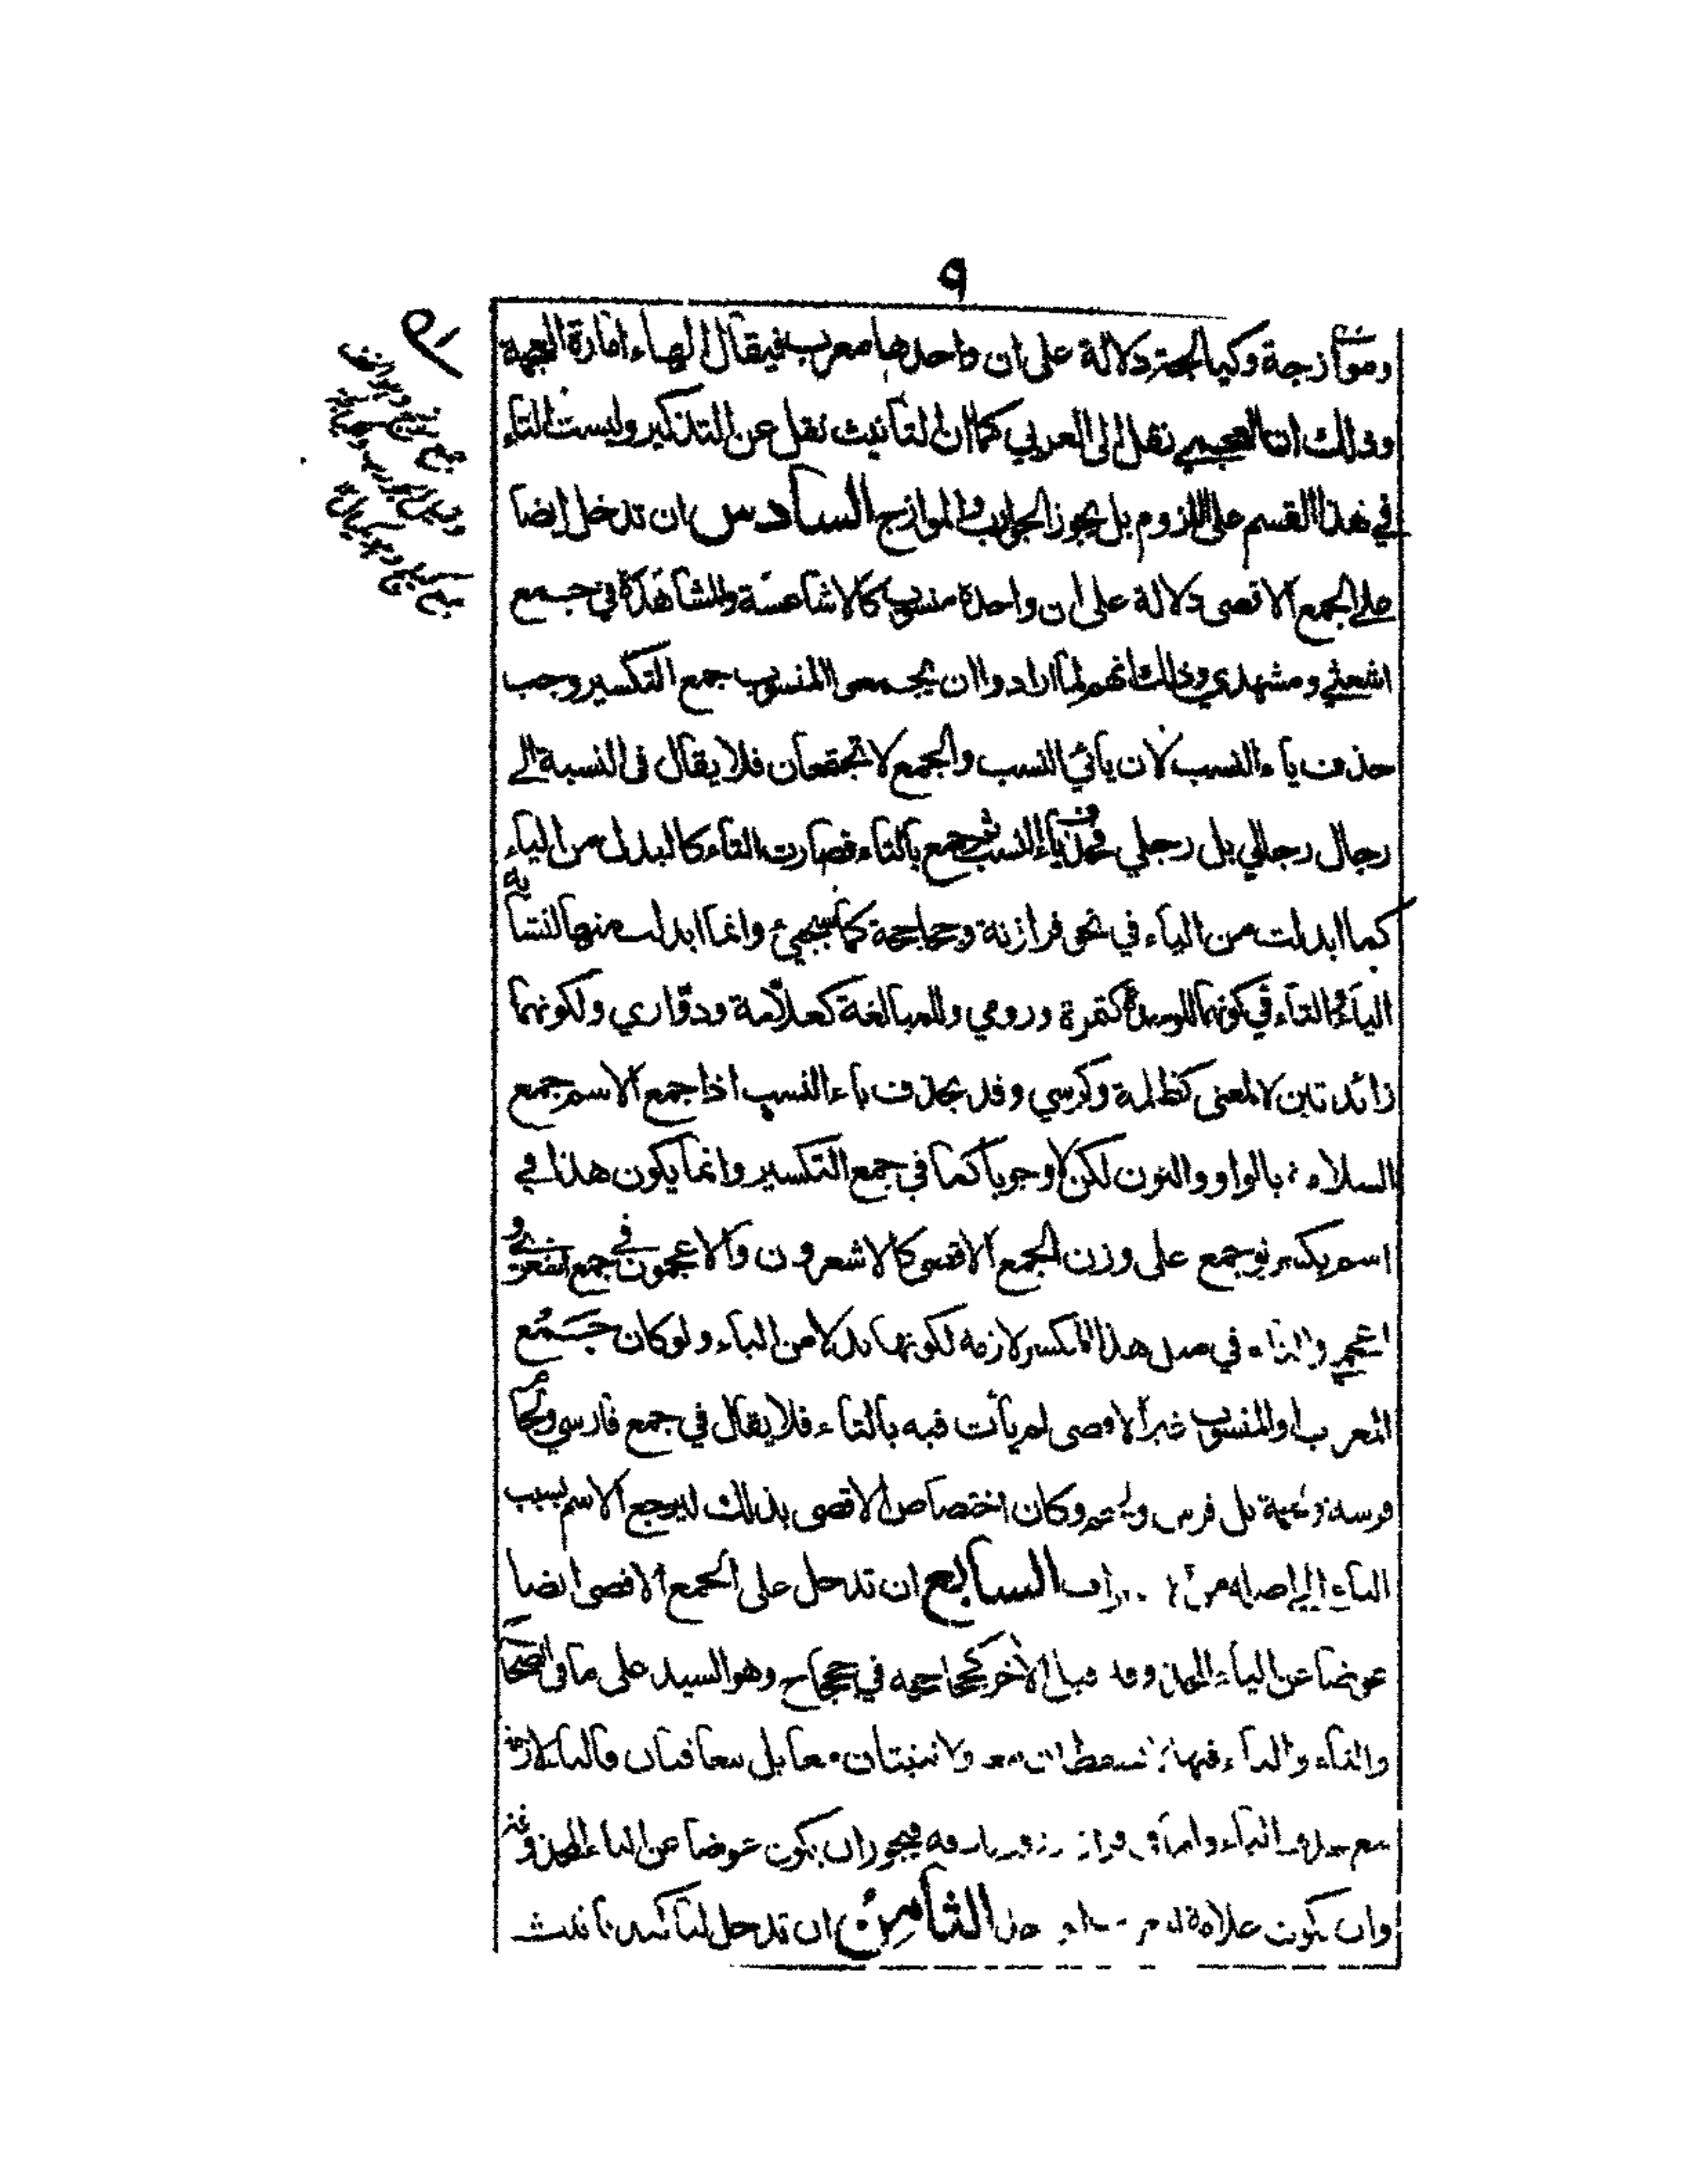 ٩
وموازجة وكيالجة دلالة على ان واحدها معرب فيقال الهاء امارة العجمة
وذلك ان العجمي نقل الى العربي كما ان التأنيث نقل عن التذكير وليست التاء
في هذا القسم على اللزوم بل يجوز الجوارب والموازج السادس ان تدخل ايضا
على الجمع الاقصى دلالة على ان واحدة منسوب كالاشاعثة والمشاهدة في جمع
اشعثي ومشهدي وذلك انهم لما ارادوا ان يجمعوا المنسوب جمع التكسير وجب
حذف ياء النسب لان يائي النسب والجمع لا تجتمعان فلا يقال في النسبة الى
رجال رجالي بل رجلي فحذف ياء النسب ثم جمع بالتاء فصارت التاء كالبدل من الياء
كما ابدلت من الياء في نحو فرازنة وجحاجحة كما سيجيئ وانما ابدلت منها لتشابه
الياء والتاء في كونهما للوحدة كتمرة ورومي وللمبالغة كعلامة ودواري ولكونهما
زائدتين لا لمعنى كظلمة وكرسي وقد يحذف ياء النسب اذا جمع الاسم جمع
السلامة بالواو والنون لكن لا وجوبا كما في جمع التكسير وانما يكون هذا في
اسم يكسر لو جمع على وزن الجمع الاقصى كالاشعرون والاعجمون في جمع اشعري و
اعجمي والتاء في مثل هذا المكسر لازمة لكونها بدلا من الياء ولو كان جمع
المعرب او المنسوب غير الاقصى لم يأت فيه بالتاء فلا يقال في جمع فارسي ولجام
فرسة ولجمة بل فرس ولجم وكان اختصاص الاقصى بذلك ليرجع الاسم بسبب
التاء الى اصله من الانصراف السابع ان تدخل على الجمع الاقصى ايضا
عوضا عن الياء المحذوفة قبل الآخر كجحاجحة في جحجاح وهو السيد على ما في الصحاح
والتاء والياء فيها لا تسقطان معا ولا تثبتان معا بل تتعاقبان فالتاء لازمة
مع حذف الياء واما في فيجوز ان يكون عوضا عن الياء المحذوفة
وان يكون علامة الثامن ان تدخل لتأكيد تأنيث